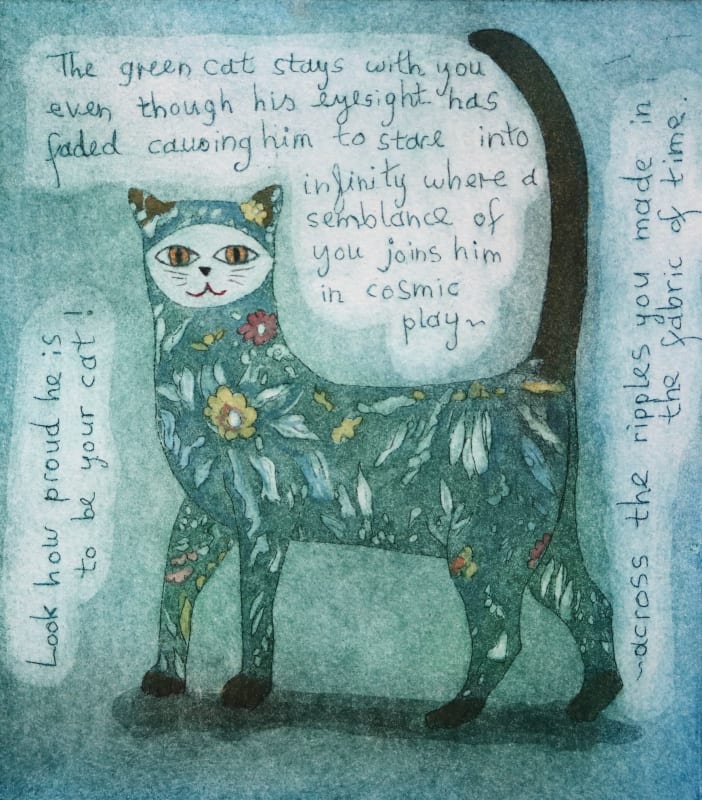 The green cat stays with you
even though his eyesight has
faded causing him to stare into
infinity where a
semblance of
you joins him
in cosmic
play~
~across the ripples you made in
the fabric of time.
Look how proud he is
to be your cat!